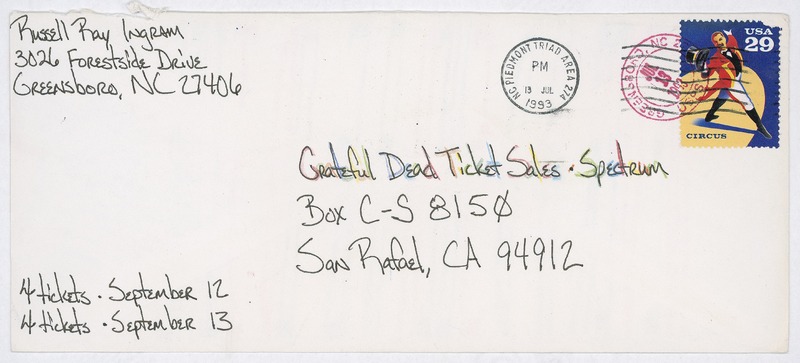 Russell Ray Ingram
3026 Forestside Drive
Greensboro, NC 27406
NC PIEDMONT TRIAD AREA 274
PM
13 JUL
1993
GREENSBORO, NC
USA
29
CIRCUS
Grateful Dead Ticket Sales · Spectrum
Box C-S 8150
San Rafael, CA 94912
4 tickets · September 12
4 tickets · September 13